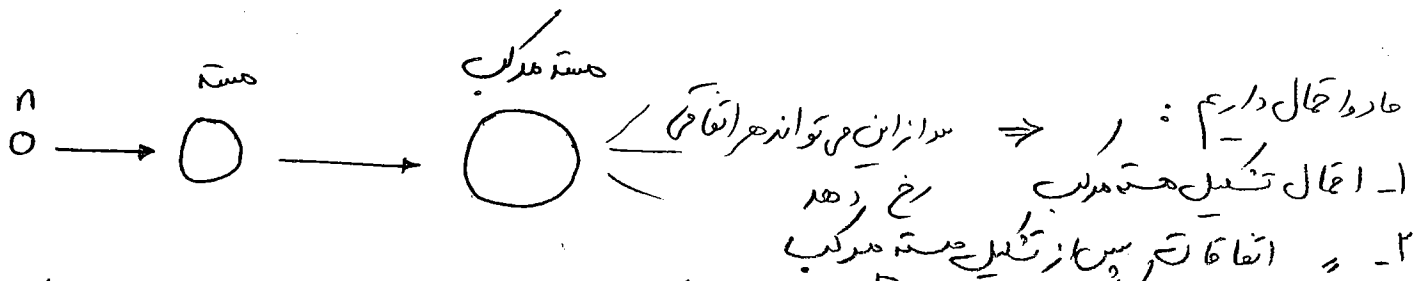 n
هسته
هسته مرکب
پس از این می تواند هر اتفاقی
رخ دهد
⇒ ما دو احتمال داریم :
۱- احتمال تشکیل هسته مرکب
۲- 〃 اتفاقات پس از تشکیل هسته مرکب